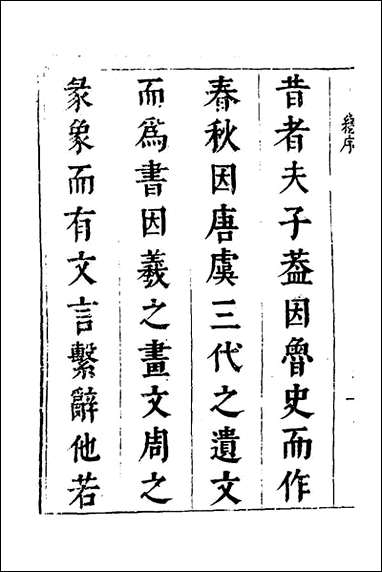 昔者夫子葢因魯史而作
春秋因唐虞三代之遺文
而爲書因羲之畫文周之
彖象而有文言繫辭他若
序
一